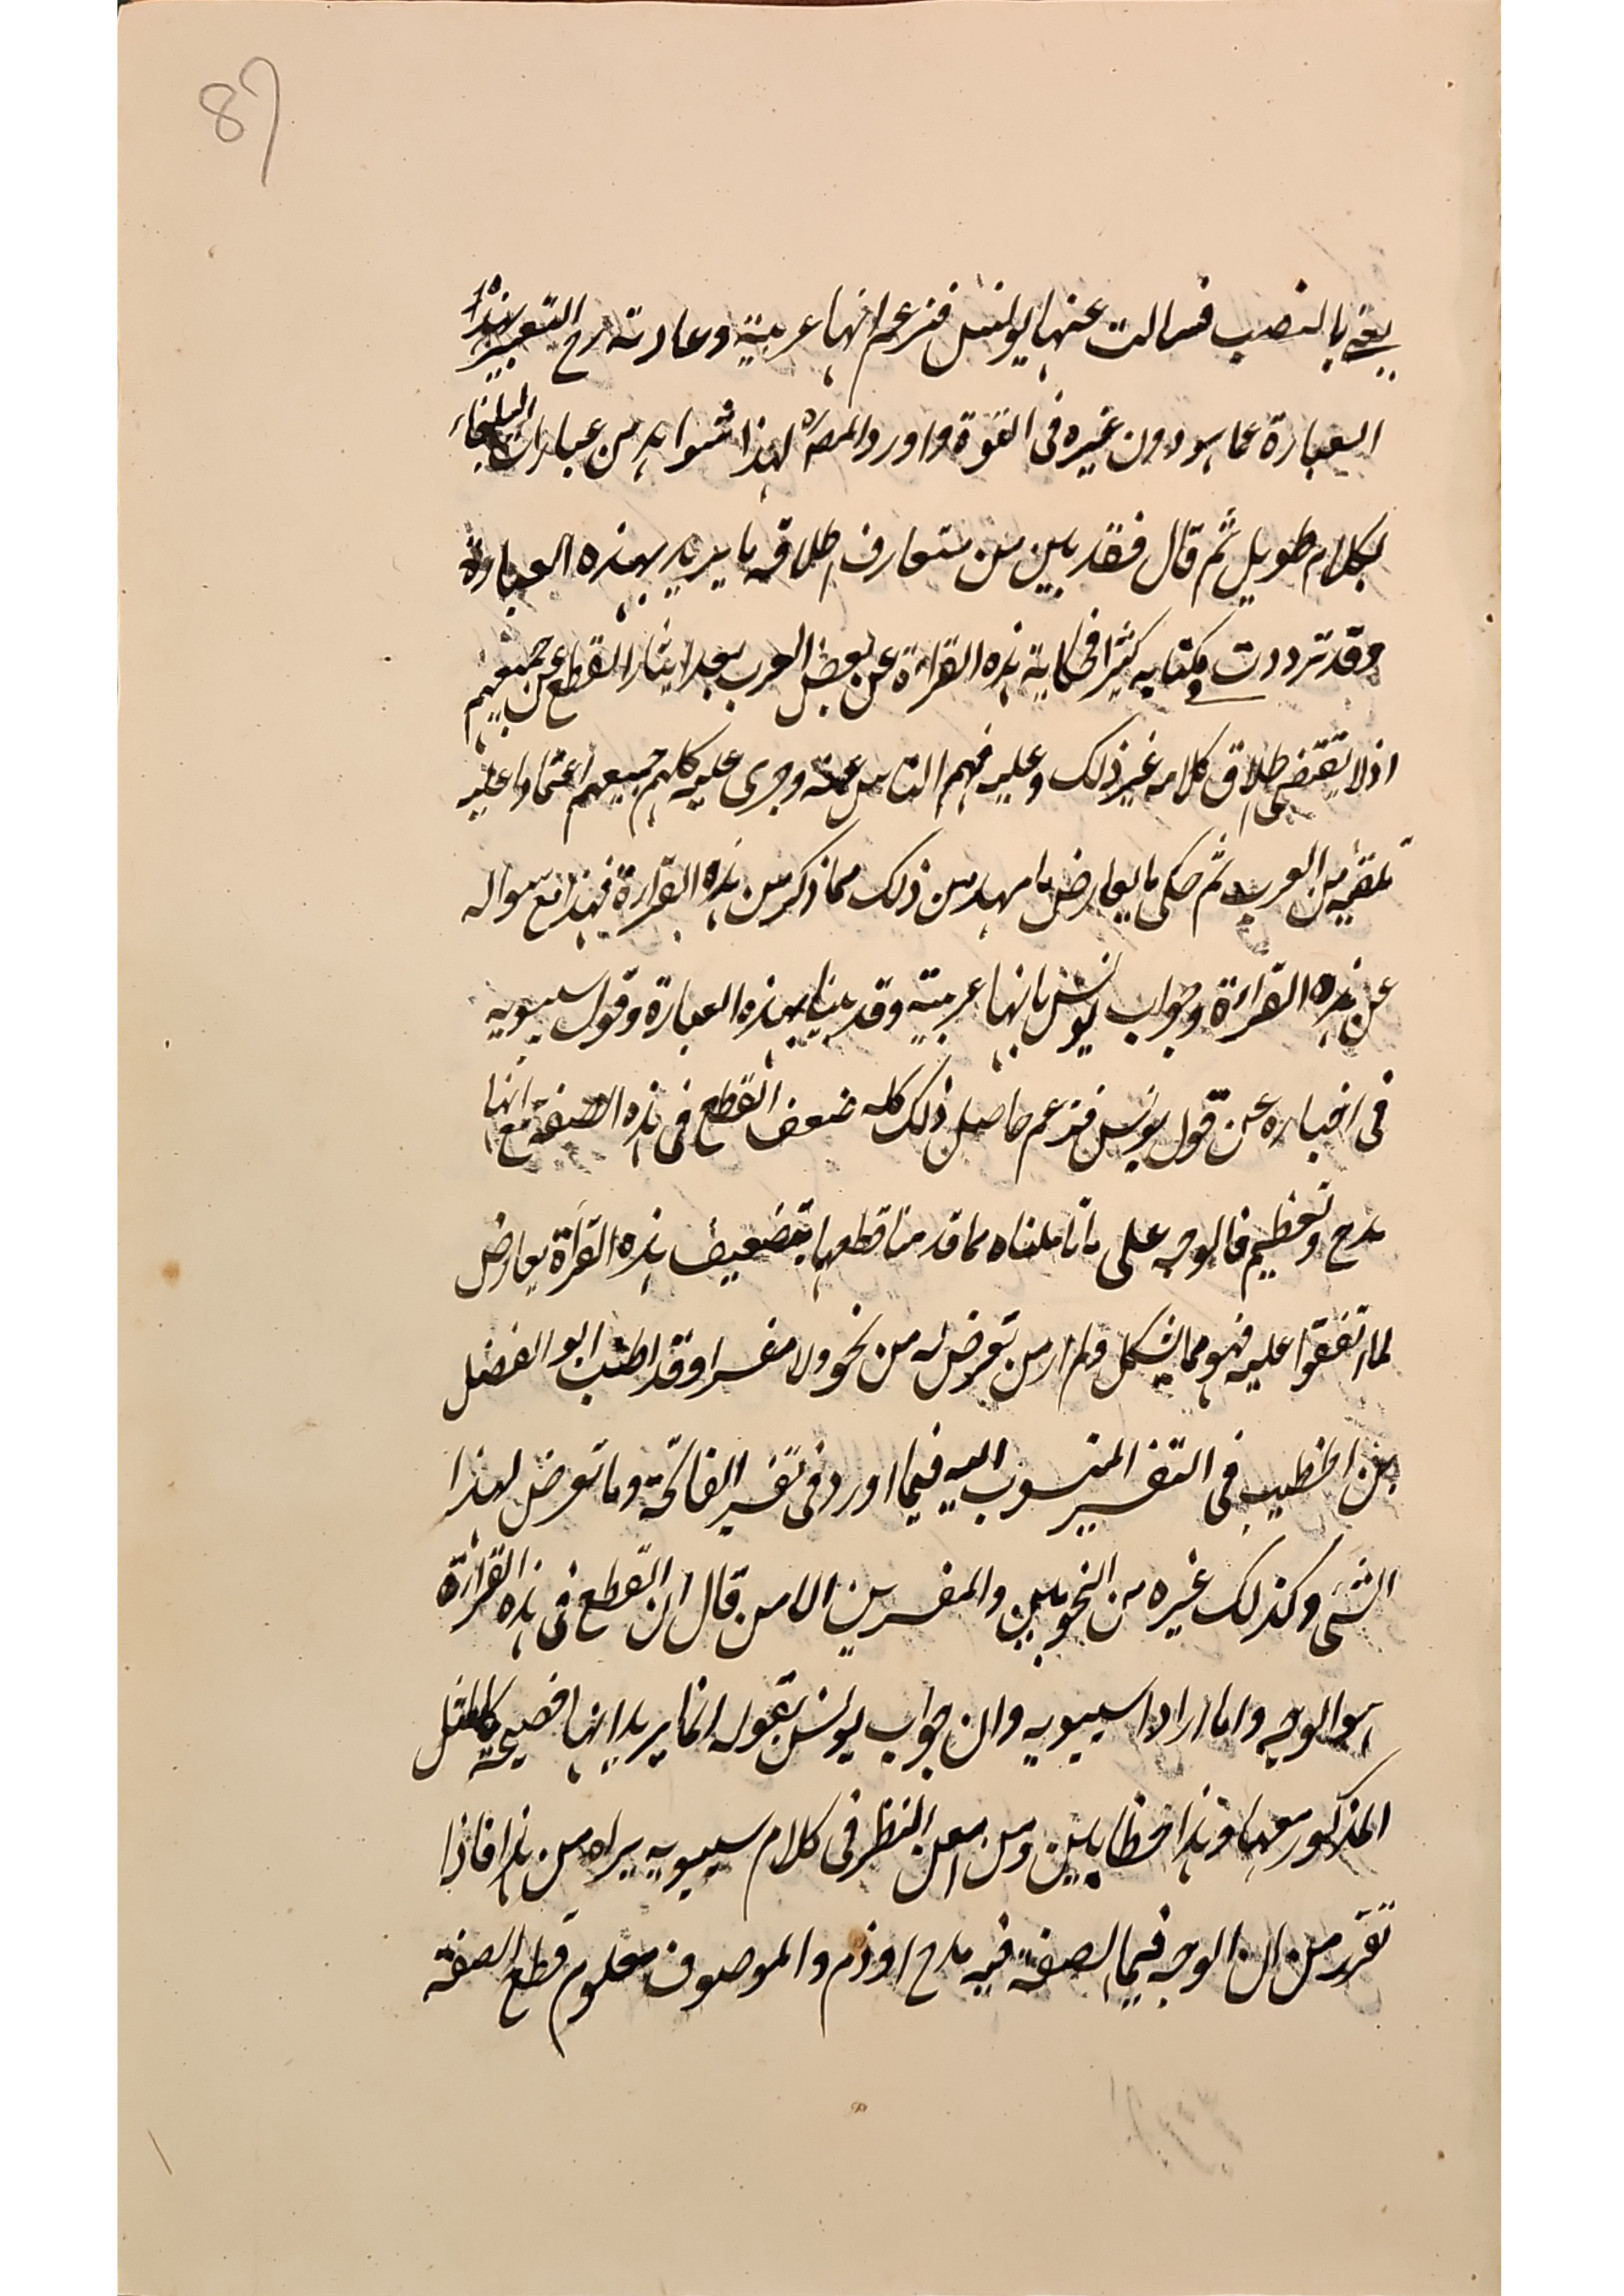 87
يعني بالنصب فسالت عنها يونس فزعم انها عربية وعادته رح التعبير بهذه
العبارة عما هو دون غيره في القوة واورد المصـ لهذا شواهد من عبارات البلغاء
بكلام طويل ثم قال فقد بين من متعارف اطلاقه ما يريد بهذه العبارة
وقد ترددت في كتابه كثيرا فحكاية هذه القراءة عن بعض العرب بعد ايثار القطع عن جميعهم
اذ لا يقتضي اطلاق كلامه غير ذلك وعليه فهم الناس عنه وجرى عليه كلهم جميعهم اعتمادا عليه
تلقيه من العرب ثم حكى ما يعارض ما مهد من ذلك مما ذكر من هذه القراءة فهذا مع سواله
عن هذه القراءة وجواب يونس بانها عربية وقد بينا بهذه العبارة وقول سيبويه
في اخباره عن قول يونس فزعم حاصل ذلك كله ضعف القطع في هذه الصفة مع انها
مدح وتعظيم فالوجه على ما تاملناه مما قدمنا قطعها بتضعيف هذه القراة يعارض
لما اتفقوا عليه فهو مما يشكل ولم ار من تعرض له من نحو ولا مفسرا وقد اطنب ابو الفضل
بن الخطيب في التفسير المنسوب اليه فيما اورد في تفسير الفاتحة وما تعرض لهذا
الشئ وكذلك غيره من النحويين والمفسرين الا من قال ان القطع في هذه القراءة
هو الوجه واما اراد سيبويه وان جواب يونس بقوله انما يريد انها فصيحة كالمثل
المذكور معها وهذا خطا بين ومن امعن النظر في كلام سيبويه يراه من هذا فاذا
تقرر من ان الوجه فيما الصفة فيه مدح او ذم والموصوف معلوم قطع الصفة